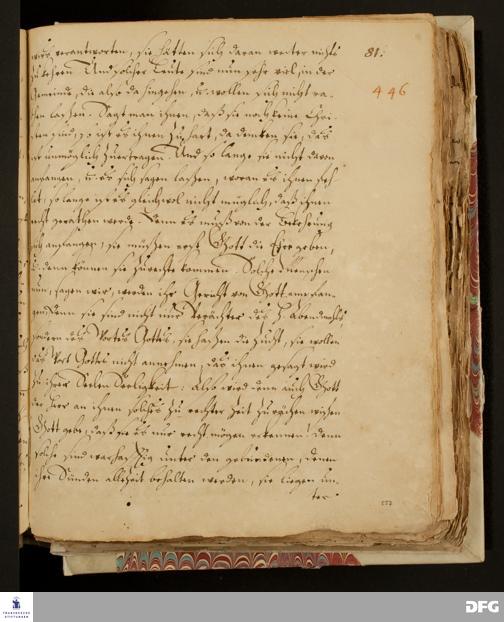 verantworten, sie hätten sich daran weiter nichts
81.
zu kehren. Und solcher Leute sind nun sehr viel in der
446
Gemeine, die also da hingehen, u. wollen sich nicht ra-
then lassen. Sagt man ihnen, daß sie noch keine Chri-
sten sind, so ist es ihnen zu hart, da dencken sie, das
sey unmöglich zu ertragen. Und so lange sie nicht davon
ausgangen, u. es sich sagen lassen, woran es ihnen feh-
let, so lange ist es gleichwol nicht müglich, daß ihnen
recht gerathen werde. Denn es muß von der Bekehrung
sich anfangen, sie müssen erst Gott die Ehre geben,
denn können sie zurechte kommen. Solche Menschen
nun, sagen wir, werden ihr Gericht von Gott empfan-
gen. Denn sie sind nicht nur Verächter des H. Abendmahls,
sondern des Wortes Gottes, sie hassen die Zucht, sie wollen
das Wort Gottes nicht annehmen, das ihnen gesagt wird
zu ihrer Seelen Seeligkeit: also wird denn auch Gott
der Herr an ihnen solches zu rechter Zeit zu rächen wissen
Gott gebe, daß sie es nur recht mögen erkennen! Denn
solche sind warhafftig unter den gebundenen, denen
ihre Sünden allezeit behalten werden, sie liegen un-
ter
FRANCKESCHE STIFTUNGEN
DFG